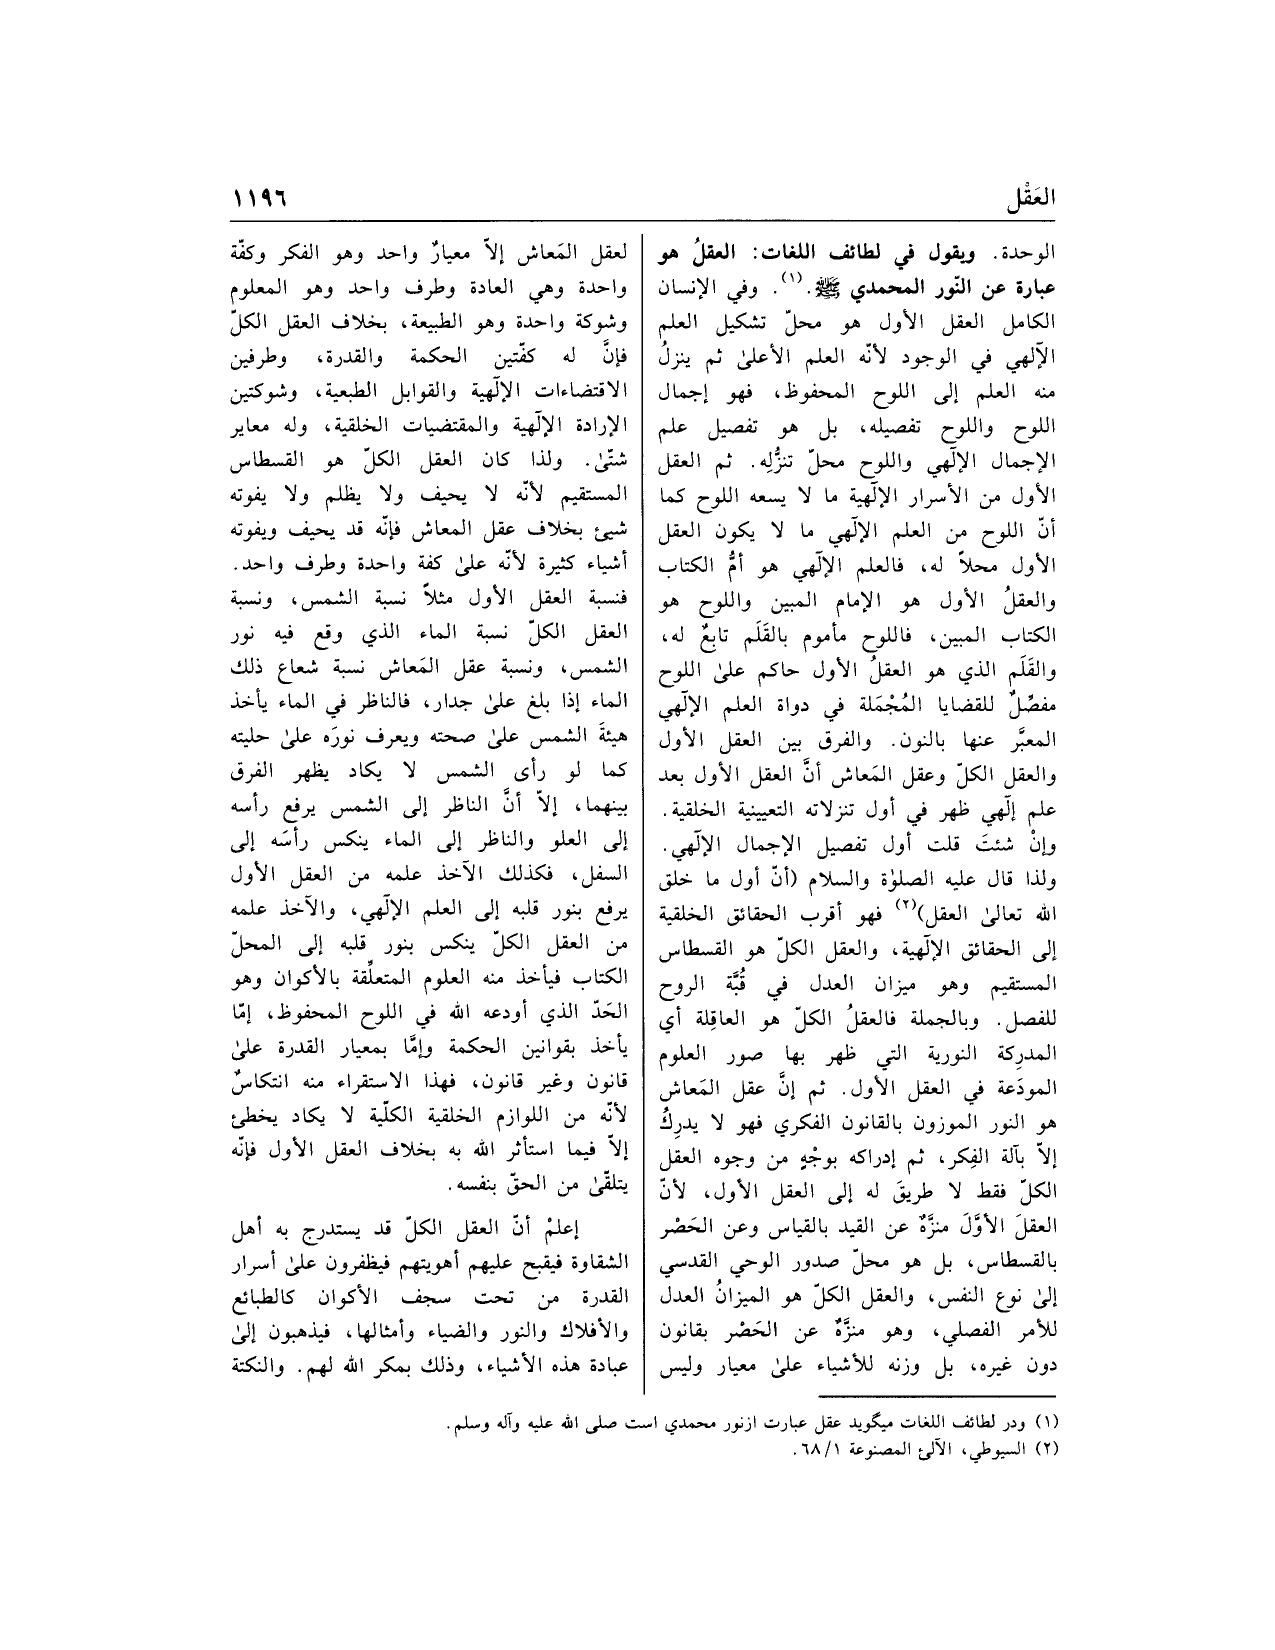 العَقْل
١١٩٦
الوحدة. ويقول في لطائف اللغات: العقلُ هو
عبارة عن النّور المحمدي ﷺ.(١). وفي الإنسان
الكامل العقل الأول هو محلّ تشكيل العلم
الإلٓهي في الوجود لأنّه العلم الأعلىٰ ثم ينزلُ
منه العلم إلى اللوح المحفوظ، فهو إجمال
اللوح واللوح تفصيله، بل هو تفصيل علم
الإجمال الإلٓهي واللوح محلّ تنزُّلِه. ثم العقل
الأول من الأسرار الإلٓهية ما لا يسعه اللوح كما
أنّ اللوح من العلم الإلٓهي ما لا يكون العقل
الأول محلاً له، فالعلم الإلٓهي هو أمُّ الكتاب
والعقلُ الأول هو الإمام المبين واللوح هو
الكتاب المبين، فاللوح مأموم بالقَلَم تابعٌ له،
والقَلَم الذي هو العقلُ الأول حاكم علىٰ اللوح
مفصِّلٌ للقضايا المُجْمَلة في دواة العلم الإلٓهي
المعبَّر عنها بالنون. والفرق بين العقل الأول
والعقل الكلّ وعقل المَعاش أنَّ العقل الأول بعد
علم إلٓهي ظهر في أول تنزلاته التعيينية الخلقية.
وإنْ شئتَ قلت أول تفصيل الإجمال الإلٓهي.
ولذا قال عليه الصلوٰة والسلام (أنّ أول ما خلق
الله تعالىٰ العقل)(٢) فهو أقرب الحقائق الخلقية
إلى الحقائق الإلٓهية، والعقل الكلّ هو القسطاس
المستقيم وهو ميزان العدل في قُبَّة الروح
للفصل. وبالجملة فالعقلُ الكلّ هو العاقِلة أي
المدرِكة النورية التي ظهر بها صور العلوم
المودَعة في العقل الأول. ثم إنَّ عقل المَعاش
هو النور الموزون بالقانون الفكري فهو لا يدرِكُ
إلاّ بآلة الفِكر، ثم إدراكه بوجْهٍ من وجوه العقل
الكلّ فقط لا طريقَ له إلى العقل الأول، لأنّ
العقلَ الأوَّلَ منزَّهٌ عن القيد بالقياس وعن الحَصْر
بالقسطاس، بل هو محلّ صدور الوحي القدسي
إلىٰ نوع النفس، والعقل الكلّ هو الميزانُ العدل
للأمر الفصلي، وهو منزَّهٌ عن الحَصْر بقانون
دون غيره، بل وزنه للأشياء علىٰ معيار وليس
لعقل المَعاش إلاّ معيارٌ واحد وهو الفكر وكفّة
واحدة وهي العادة وطرف واحد وهو المعلوم
وشوكة واحدة وهو الطبيعة، بخلاف العقل الكلّ
فإنَّ له كفّتين الحكمة والقدرة، وطرفين
الاقتضاءات الإلٓهية والقوابل الطبعية، وشوكتين
الإرادة الإلٓهية والمقتضيات الخلقية، وله معاير
شتّىٰ. ولذا كان العقل الكلّ هو القسطاس
المستقيم لأنّه لا يحيف ولا يظلم ولا يفوته
شيئ بخلاف عقل المعاش فإنّه قد يحيف ويفوته
أشياء كثيرة لأنّه علىٰ كفة واحدة وطرف واحد.
فنسبة العقل الأول مثلاً نسبة الشمس، ونسبة
العقل الكلّ نسبة الماء الذي وقع فيه نور
الشمس، ونسبة عقل المَعاش نسبة شعاع ذلك
الماء إذا بلغ علىٰ جدار، فالناظر في الماء يأخذ
هيئةَ الشمس علىٰ صحته ويعرف نورَه علىٰ حليته
كما لو رأى الشمس لا يكاد يظهر الفرق
بينهما، إلاّ أنَّ الناظر إلى الشمس يرفع رأسه
إلى العلو والناظر إلى الماء ينكس رأسَه إلى
السفل، فكذلك الآخذ علمه من العقل الأول
يرفع بنور قلبه إلى العلم الإلٓهي، والآخذ علمه
من العقل الكلّ ينكس بنور قلبه إلى المحلّ
الكتاب فيأخذ منه العلوم المتعلِّقة بالأكوان وهو
الحَدّ الذي أودعه الله في اللوح المحفوظ، إمّا
يأخذ بقوانين الحكمة وإمَّا بمعيار القدرة علىٰ
قانون وغير قانون، فهذا الاستقراء منه انتكاسٌ
لأنّه من اللوازم الخلقية الكلّية لا يكاد يخطئ
إلاّ فيما استأثر الله به بخلاف العقل الأول فإنّه
يتلقّىٰ من الحقّ بنفسه.
إعلمْ أنّ العقل الكلّ قد يستدرج به أهل
الشقاوة فيقبح عليهم أهويتهم فيظفرون علىٰ أسرار
القدرة من تحت سجف الأكوان كالطبائع
والأفلاك والنور والضياء وأمثالها، فيذهبون إلىٰ
عبادة هذه الأشياء، وذلك بمكر الله لهم. والنكتة
(١) ودر لطائف اللغات ميگويد عقل عبارت ازنور محمدي است صلى الله عليه وآله وسلم.
(٢) السيوطي، الآلئ المصنوعة ٦٨/١.